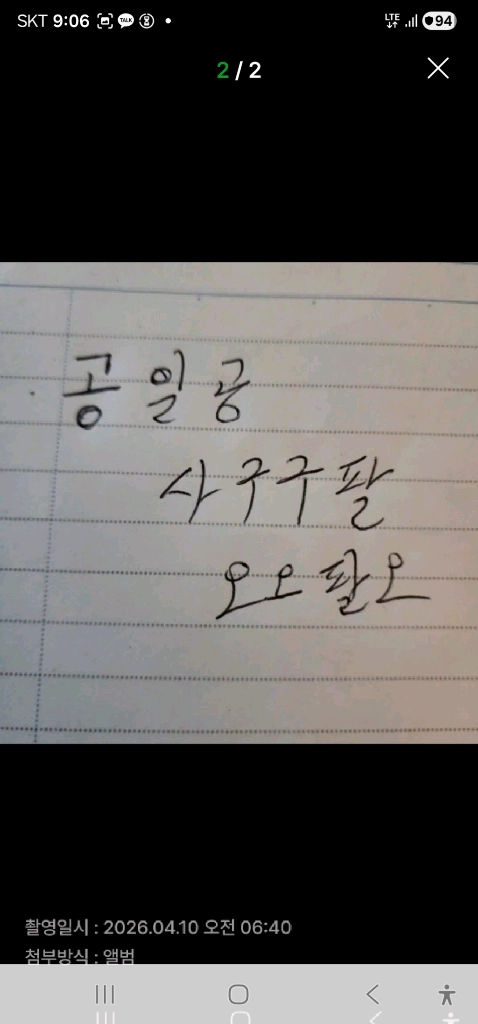 SKT 9:06 TALK LTE 94
2 / 2
공 일 공
사구구팔
오오팔오
촬영일시 : 2026.04.10 오전 06:40
첨부방식 : 앨범